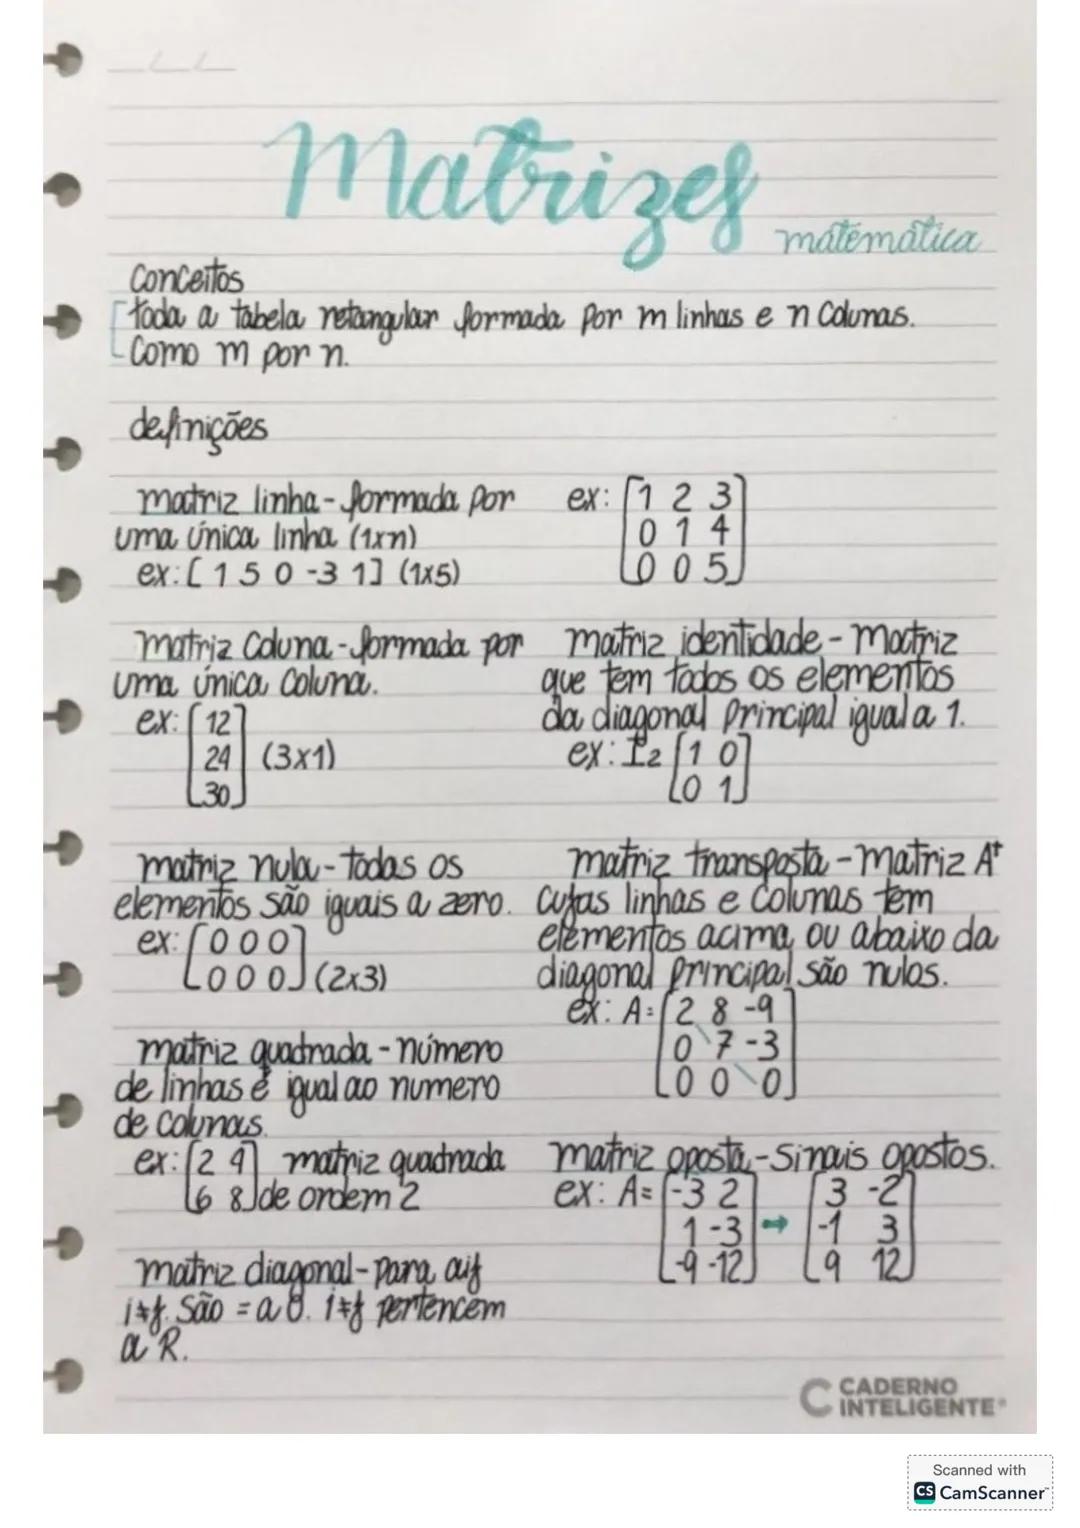 Matrizes
matemática
Conceitos
toda a tabela retangular formada por m linhas e n Colunas.
Como m por n.
definições
matriz linha - formada por
uma única linha (1xn)
ex: [ 1 5 0 -3 1] (1x5)
matriz Coluna - formada por
uma única Coluna.
ex: [12
24 (3x1)
30]
matriz nula - todas os
elementos são iguais a zero.
ex: [0 0 0
0 0 0] (2x3)
matriz quadrada - número
de linhas é igual ao numero
de Colunas.
ex: [2 4 matriz quadrada
6 8] de ordem 2
matriz diagonal - para aij
i≠j. São = a 0. i≠j pertencem
a R.
ex: [1 2 3
0 1 4
0 0 5]
matriz identidade - Matriz
que tem todos os elementos
da diagonal principal igual a 1.
ex: I2 [1 0
0 1]
matriz transposta - Matriz At
cujas linhas e Colunas tem
elementos acima ou abaixo da
diagonal principal são nulos.
ex: A= [2 8 -9
0 7 -3
0 0 0]
matriz oposta - Sinais opostos.
ex: A= [-3 2 [3 -2
1 -3 → -1 3
-9 -12] 9 12]
CADERNO
INTELIGENTE
Scanned with
CS CamScanner